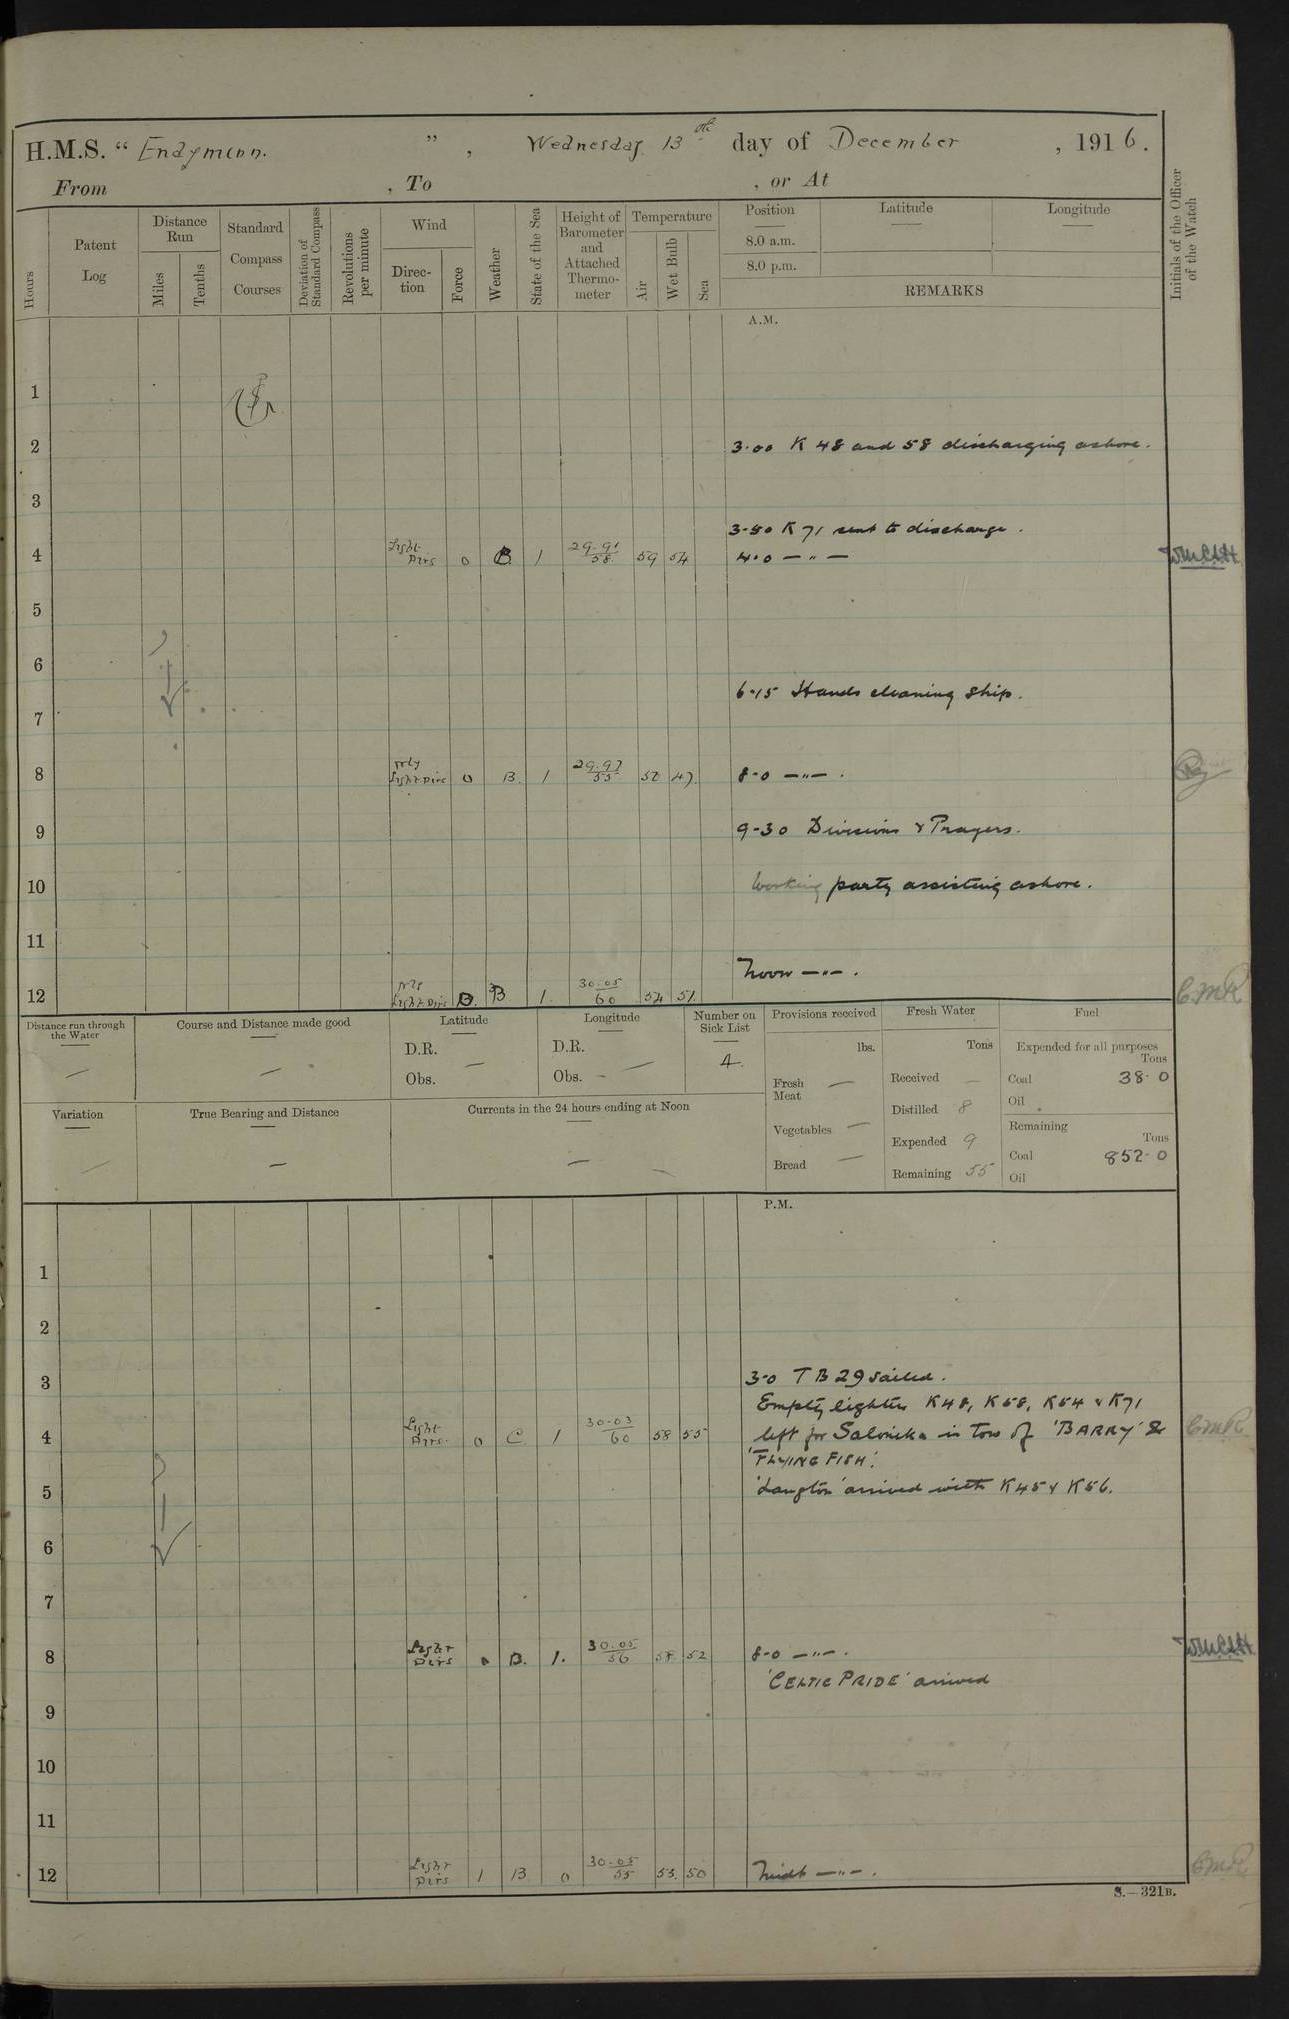 H.M.S. “ Endymion. ” , Wednesday 13th day of December , 1916 .
From , To , or At
Hours
Patent Log
Distance Run
Miles
Tenths
Standard Compass Courses
Deviation of Standard Compass
Revolutions per minute
Wind
Direc-tion
Force
Weather
State of the Sea
Height of Barometer and Attached Thermo-meter
Temperature
Air
Wet Bulb
Sea
Position
8.0 a.m.
8.0 p.m.
Latitude
Longitude
REMARKS
Initials of the Officer of the Watch
A.M.
1
2
3.00 K 48 and 58 discharging ashore.
3
3-50 K 71 sent to discharge.
4 Light Airs 0 B 1 29.91 58 59 54 4.0 — " —
5
6
6.15 Hands cleaning ship.
7
8 Light Airs 0 B. 1 29.97 55 52 47. 8-0 — " — .
9 9-30 Divisions & Prayers.
10 Working party assisting ashore.
11
Noon — " — .
12 Light Airs 0. B 1. 30.05 60 54 51. C.M.R
Distance run through the Water
—
Course and Distance made good
—
Latitude
D.R.
Obs. —
Longitude
D.R.
Obs. —
Number on Sick List
4.
Provisions received
lbs.
Fresh Meat —
Vegetables —
Bread —
Fresh Water
Tons
Received —
Distilled 8
Expended 9
Remaining 55
Fuel
Expended for all purposes
Tons
Coal 38.0
Oil
Remaining
Tons
Coal 852.0
Oil
Variation
—
True Bearing and Distance
—
Currents in the 24 hours ending at Noon
—
P.M.
1
2
3 3-0 TB 29 sailed.
Empty lighters K48, K58, K54 & K71
4 Light Airs. 0 C 1 30.03 60 58 55 left for Salonika in tow of 'BARRY' & C.M.R.
'FLYING FISH'.
5 'Langton' arrived with K45 & K56.
6
7
8 Light Airs 0 B. 1. 30.05 56 58 52 8-0 — " — .
'CELTIC PRIDE' arrived
9
10
11
12 Light Airs 1 B 0 30.05 55 53. 50 Midt — " — . C.M.R
S.—321B.